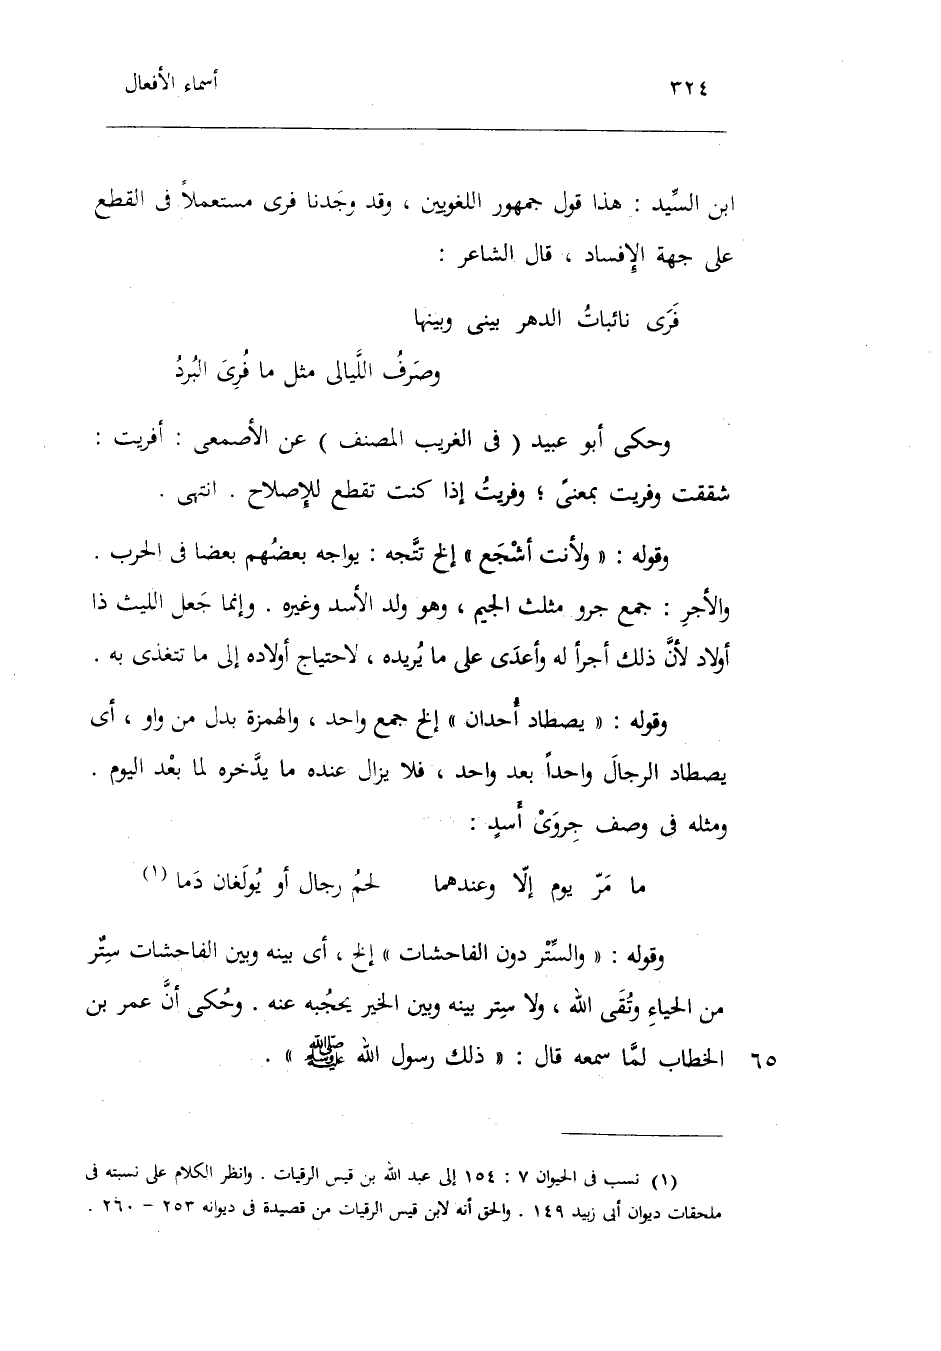 ٣٢٤ أسماء الأفعال
ابن السِّيد : هذا قول جمهور اللغويين ، وقد وجَدنا فرى مستعملاً فى القطع
على جهة الإِفساد ، قال الشاعر :
فَرَى نائباتُ الدهر بينى وبينها
وصَرفُ اللَّيالى مثل ما فُرِىَ البُردُ
وحكى أبو عبيد ( فى الغريب المصنف ) عن الأصمعى : أفريت :
شققت وفريت بمعنىً ؛ وفريتُ إذا كنت تقطع للإِصلاح . انتهى .
وقوله : « ولأنت أشْجَع » إلخ تتَّجه : يواجه بعضُهم بعضا فى الحرب .
والأجرِ : جمع جرو مثلث الجيم ، وهو ولد الأسد وغيره . وإنما جَعل الليث ذا
أولاد لأنَّ ذلك أجرأ له وأعدَى على ما يُريده ، لاحتياج أولاده إلى ما تتغذى به .
وقوله : « يصطاد أُحدان » إلخ جمع واحد ، والهمزة بدل من واو ، أى
يصطاد الرجالَ واحداً بعد واحد ، فلا يزال عنده ما يدَّخره لما بعْد اليوم .
ومثله فى وصف جِروَىْ أَسدٍ :
ما مَرّ يوم إلّا وعندهما لحمُ رجال أو يُولَغان دَما (١)
وقوله : « والسِّتْر دون الفاحشات » إلخ ، أى بينه وبين الفاحشات سِتْر
من الحياءِ وتُقَى الله ، ولا سِتر بينه وبين الخير يحجُبه عنه . وحُكى أنَّ عمر بن
٦٥ الخطاب لمَّا سمعه قال : « ذلك رسول الله ﷺ » .
(١) نسب فى الحيوان ٧ : ١٥٤ إلى عبد الله بن قيس الرقيات . وانظر الكلام على نسبته فى
ملحقات ديوان أبى زبيد ١٤٩ . والحق أنه لابن قيس الرقيات من قصيدة فى ديوانه ٢٥٣ – ٢٦٠ .